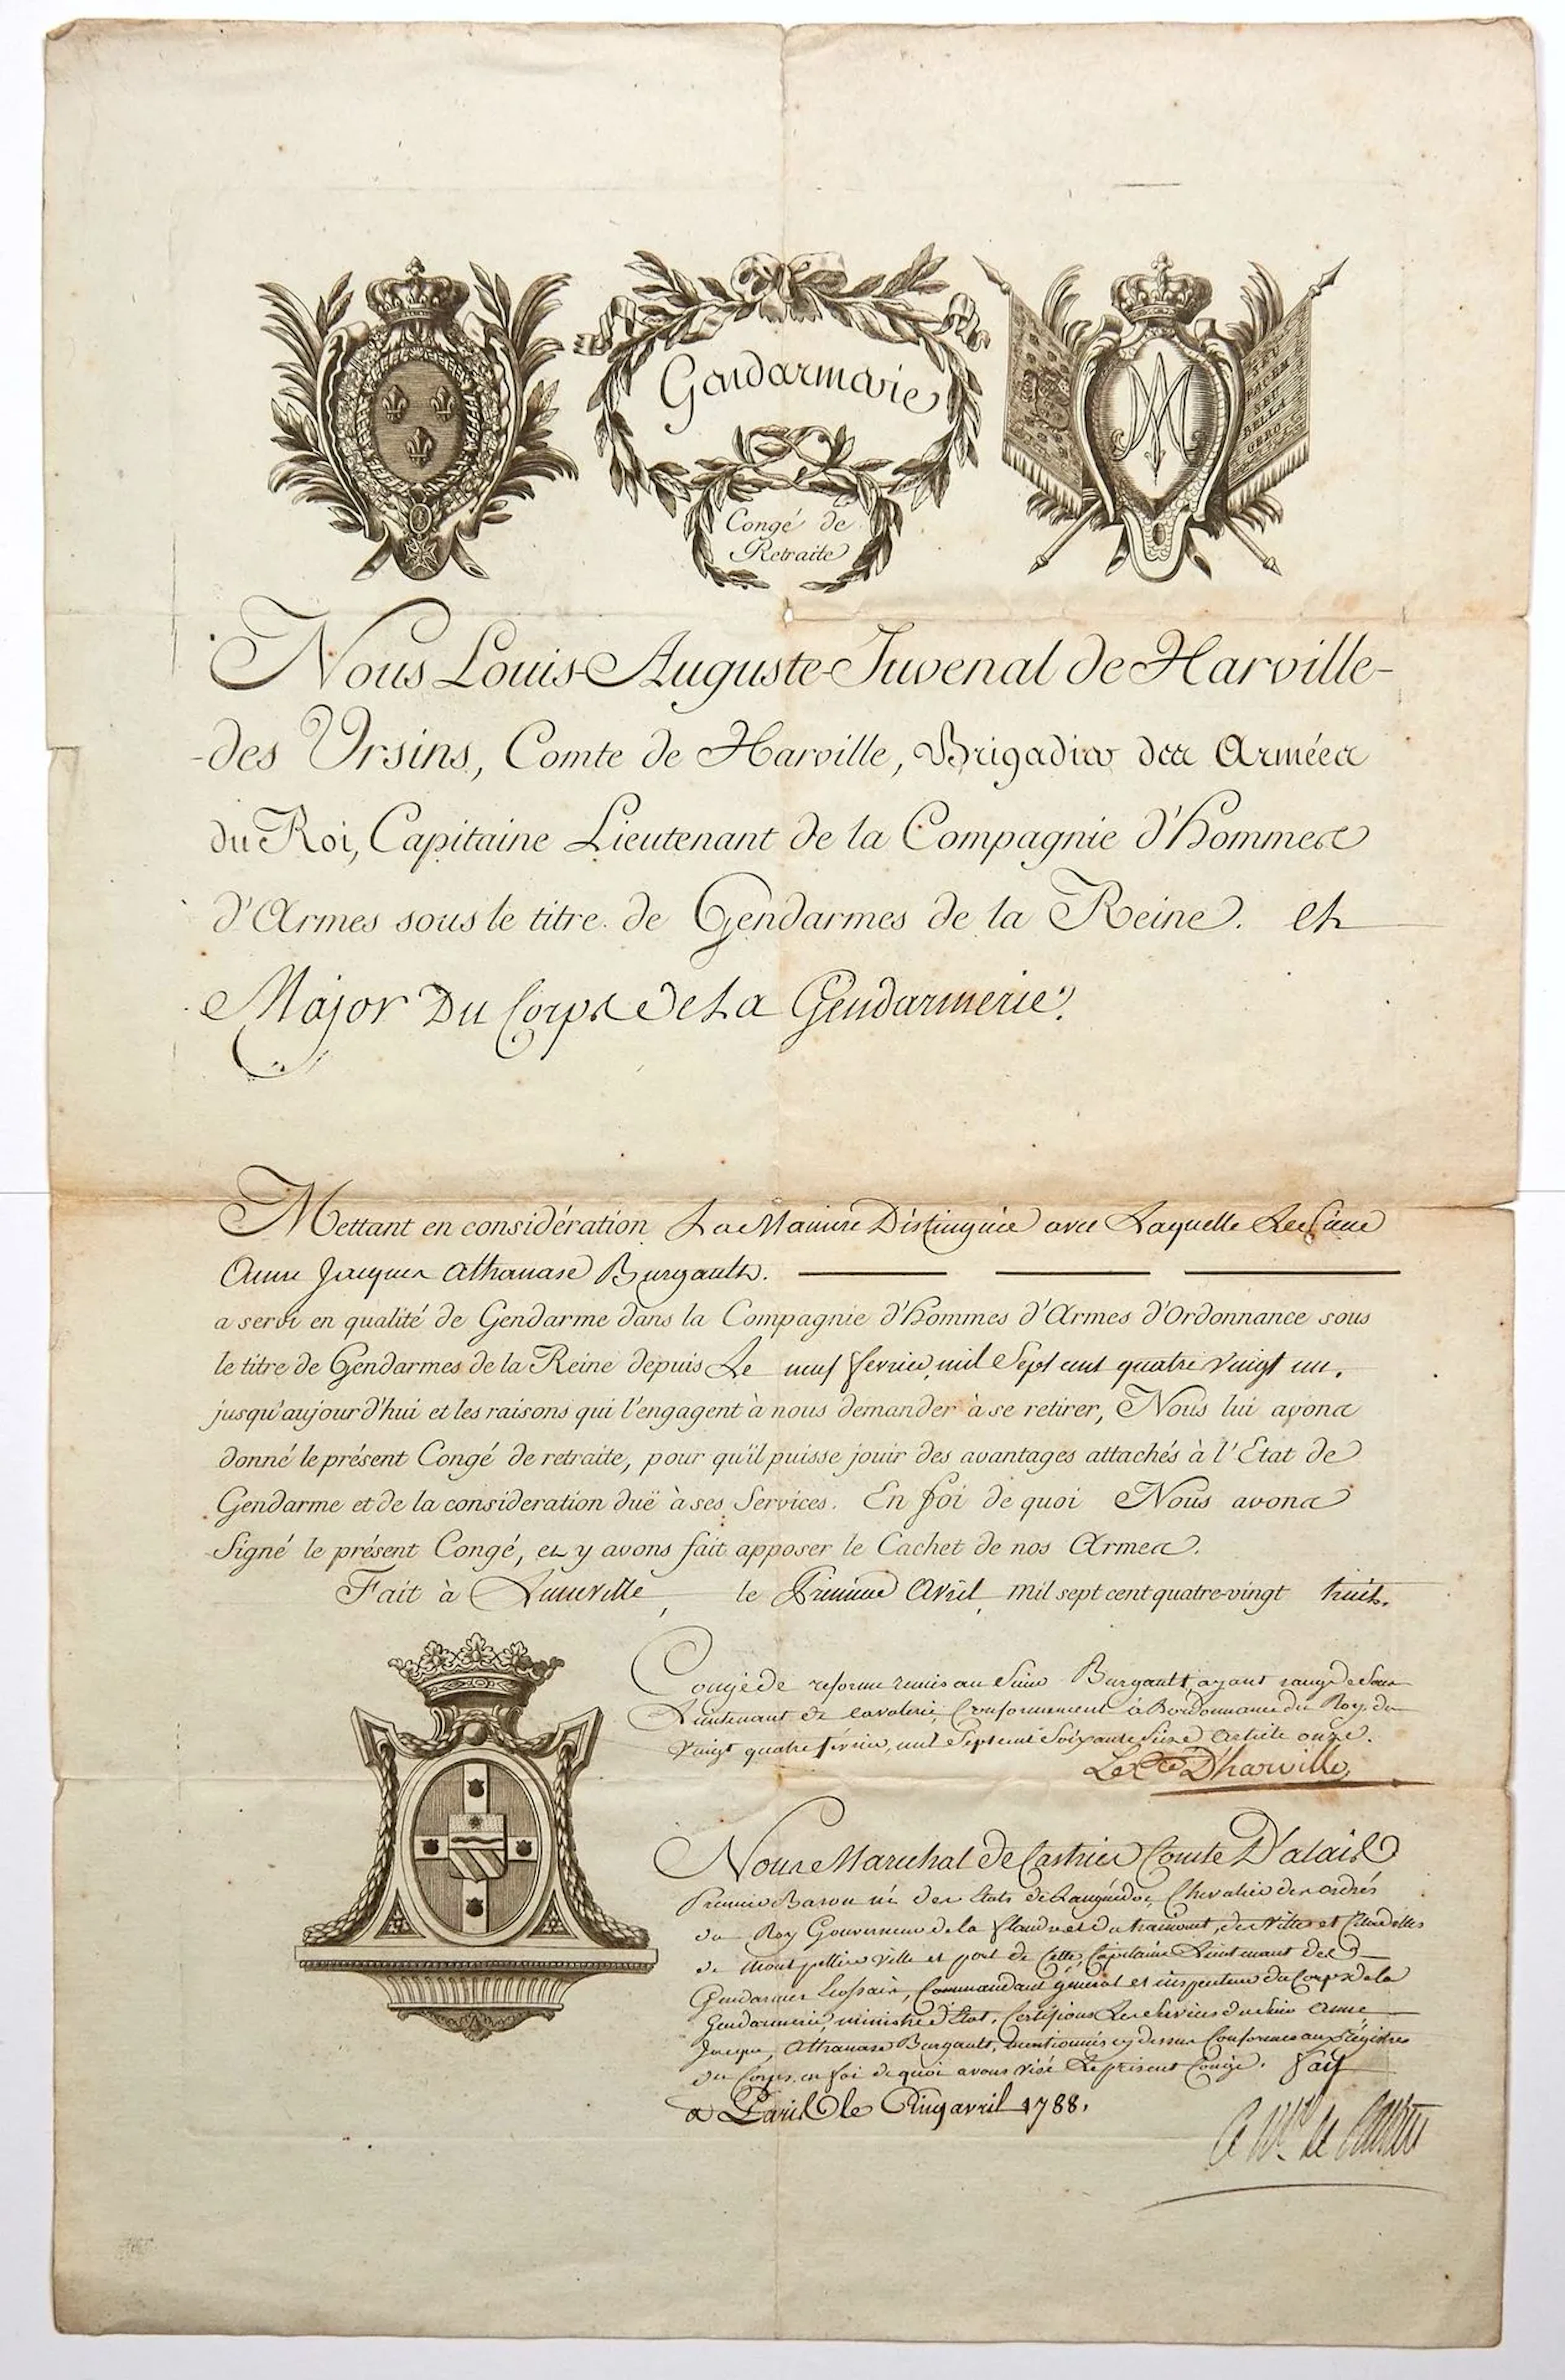 Gendarmerie
Congé de
Retraite
SEU
PACEM
SEU
BELLA
GERO
Nous Louis-Auguste-Juvenal de Harville-
-des Ursins, Comte de Harville, Brigadier des Armées
du Roi, Capitaine Lieutenant de la Compagnie d'hommes
d'Armes sous le titre de Gendarmes de la Reine. et
Major Du Corps de La Gendarmerie.
Mettant en considération La Maniere Distinguée avec Laquelle Le Sieur
Anne Jacques Athanase Burgault.
a servi en qualité de Gendarme dans la Compagnie d'hommes d'Armes d'Ordonnance sous
le titre de Gendarmes de la Reine depuis Le neuf fevrier, mil Sept cent quatre vingt un.
jusqu'aujourd'hui et les raisons qui l'engagent à nous demander à se retirer, Nous lui avons
donné le présent Congé de retraite, pour qu'il puisse jouir des avantages attachés à l'Etat de
Gendarme et de la consideration duë à ses Services. En foi de quoi Nous avons
Signé le présent Congé, et y avons fait apposer le Cachet de nos Armes.
Fait à Luneville, le Premier Avril, mil sept cent quatre-vingt huit.
Congé de reforme remis au Sieur Burgault, ayant rang de Sous
Lieutenant de Cavalerie, Conformement à l'ordonnance du Roy du
Vingt quatre février, mil Sept cent Soixante Seize Article onze.
Le Cte D'harville
Nous Marechal De Castries Comte D'alais
Premier Baron né des Etats de Languedoc, Chevalier des ordres
du Roy Gouverneur de la flandre et du hainaut, des Villes et Citadelles
de Montpellier Ville et port de Cette, Capitaine Lieutenant des
Gendarmes Ecossais, Commandant général et inspecteur du Corps de la
Gendarmerie, ministre d'Etat, Certifions Les Services du Sieur Anne
Jacques Athanase Burgault, mentionnés cy dessus Conformes aux Régistres
du Corps, en foi de quoi avons visé Le présent Congé. Fait
a Paris le Cinq avril 1788.
le Mal de Castries